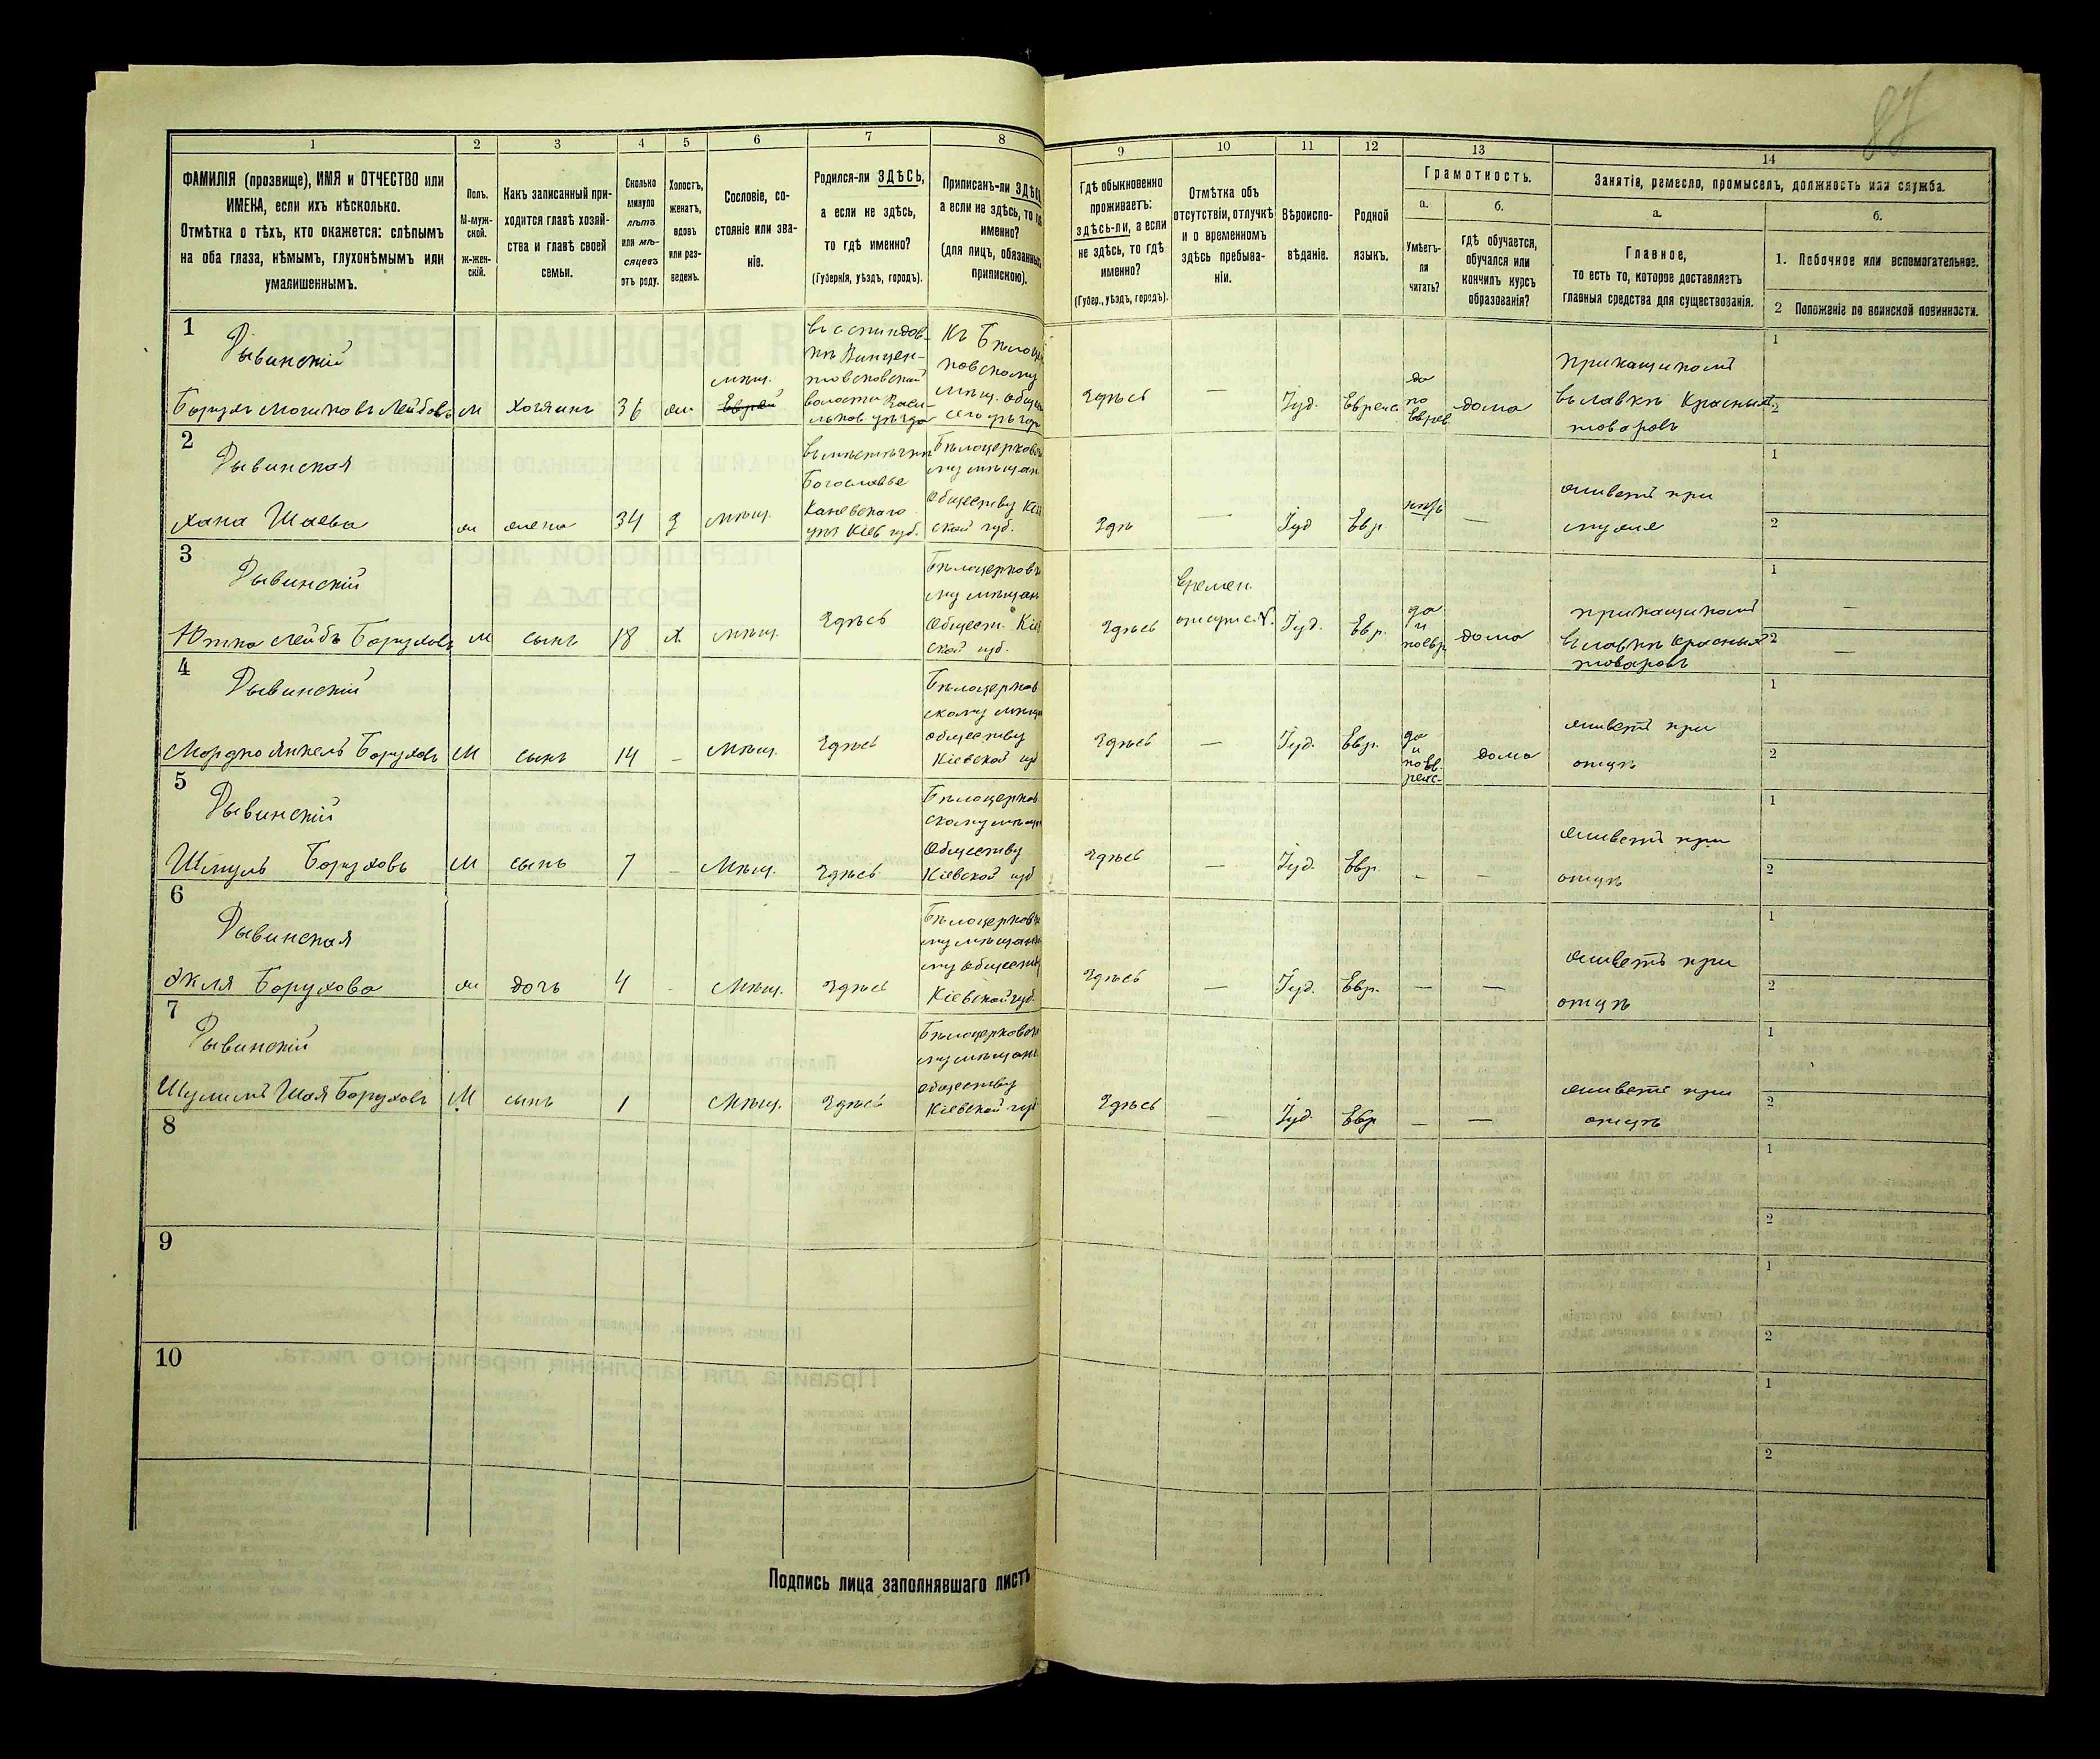 87
1 2 3 4 5 6 7 8 9 10 11 12 13 14
ФАМИЛІЯ (прозвище), ИМЯ и ОТЧЕСТВО или
ИМЕНА, если ихъ нѣсколько.
Отмѣтка о тѣхъ, кто окажется: слѣпымъ
на оба глаза, нѣмымъ, глухонѣмымъ или
умалишеннымъ.
Полъ.
М-муж-
ской.
Ж-жен-
скій.
Какъ записанный при-
ходится главѣ хозяй-
ства и главѣ своей
семьи.
Сколько
минуло
лѣтъ
или мѣ-
сяцевъ
отъ роду.
Холостъ,
женатъ,
вдовъ
или раз-
веденъ.
Сословіе, со-
стояніе или зва-
ніе.
Родился-ли ЗДѢСЬ,
а если не здѣсь,
то гдѣ именно?
(Губернія, уѣздъ, городъ).
Приписанъ-ли ЗДѢСЬ,
а если не здѣсь, то гдѣ
именно?
(для лицъ, обязанныхъ
припискою).
Гдѣ обыкновенно
проживаетъ:
здѣсь-ли, а если
не здѣсь, то гдѣ
именно?
(Губер., уѣздъ, городъ).
Отмѣтка объ
отсутствіи, отлучкѣ
и о временномъ
здѣсь пребыва-
ніи.
Вѣроиспо-
вѣданіе.
Родной
языкъ.
Грамотность.
а.
Умѣетъ-
ли
читать?
б.
гдѣ обучается,
обучался или
кончилъ курсъ
образованія?
Занятіе, ремесло, промыселъ, должность или служба.
а.
Главное,
то есть то, которое доставляетъ
главныя средства для существованія.
б.
1. Побочное или вспомогательное.
2 Положеніе по воинской повинности.
1
Рывинскій
Борухъ Лейбовъ
М хозяинъ 36 ж мѣщ.
Еврей
волости Васи-
Къ Бѣлоцер
ковскому
мѣщ.
здѣсь — Іуд. Еврейс
да
по
Еврей
дома
прикащикомъ
въ лавкѣ Красныхъ
товаровъ
1
2
2
Рывинская
Хана Шаева
ж жена 34 з мѣщ.
въ мѣстечкѣ
Богославле
Каневскаго
уѣз Кіев губ.
Бѣлоцерковско
му мѣщан
Обществу Кіев
ской губ.
здѣ — Іуд Евр. нѣтъ —
живетъ при
мужѣ
1
2
3
Рывинскій
Лейбъ Боруховъ
М сынъ 18 х. мѣщ. здѣсь
Бѣлоцерковс
му мѣщан
Обществ. Кіев
ской губ.
здѣсь
времен.
отсутс.
Іуд. Евр.
да
и
поевр
дома
прикащикомъ
въ лавкѣ Красныхъ
товаровъ
1 —
2 —
4
Рывинскій
Мордко Янкель Боруховъ
М сынъ 14 — мѣщ. здѣсь
Бѣлоцерков
скому мѣщан
обществу
Кіевской губ
здѣсь — Іуд. Евр.
да
и
по ев
рейс-
дома
живетъ при
отцѣ
1
2
5
Рывинскій
Шмуль Боруховъ
М сынъ 7 — Мѣщ. здѣсь
Бѣлоцерков
скому мѣщ
Обществу
Кіевской губ
здѣсь — Іуд. Евр. — —
живетъ при
отцѣ
1
2
6
Рывинская
Экля Борухова
ж дочь 4 - Мѣщ. здѣсь
Бѣлоцерковс
му мѣщанс
му обществу
Кіевской губ.
здѣсь — Іуд. Евр. — —
живетъ при
отцѣ
1
2
7
Рывинскій
Шулимъ Шая Боруховъ
М сынъ 1 Мѣщ. здѣсь
Бѣлоцерковск
му мѣщанс
обществу
Кіевской губ
здѣсь — Іуд. Евр — —
живетъ при
отцѣ
1
2
8
1
2
9
1
2
10
1
2
Подпись лица заполнявшаго листъ